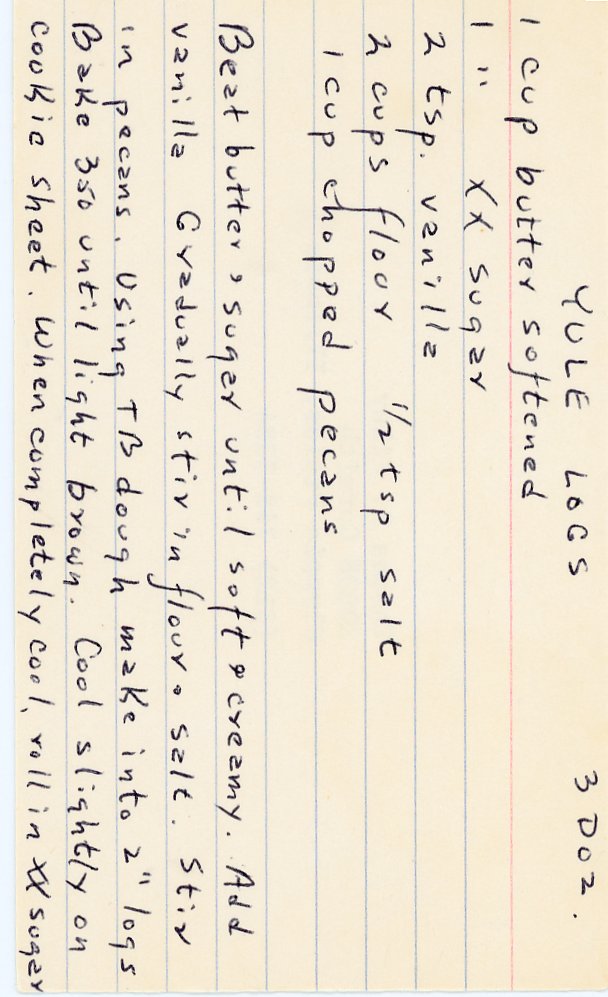 YULE LOGS 3 DOZ.
1 cup butter softened
1 " XX sugar
2 tsp. vanilla
2 cups flour 1/2 tsp salt
1 cup chopped pecans
Beat butter & sugar until soft & creamy. Add
vanilla Gradually stir in flour & salt. Stir
in pecans. Using TB dough make into 2" logs
Bake 350 until light brown. Cool slightly on
cookie sheet. When completely cool, roll in XX sugar